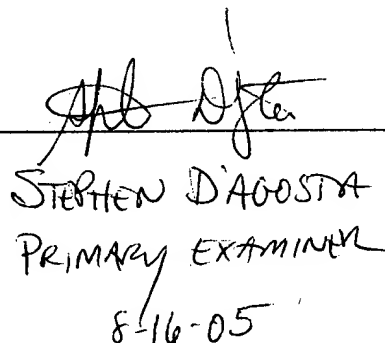 STEPHEN D'AGOSTA
PRIMARY EXAMINER
8-16-05